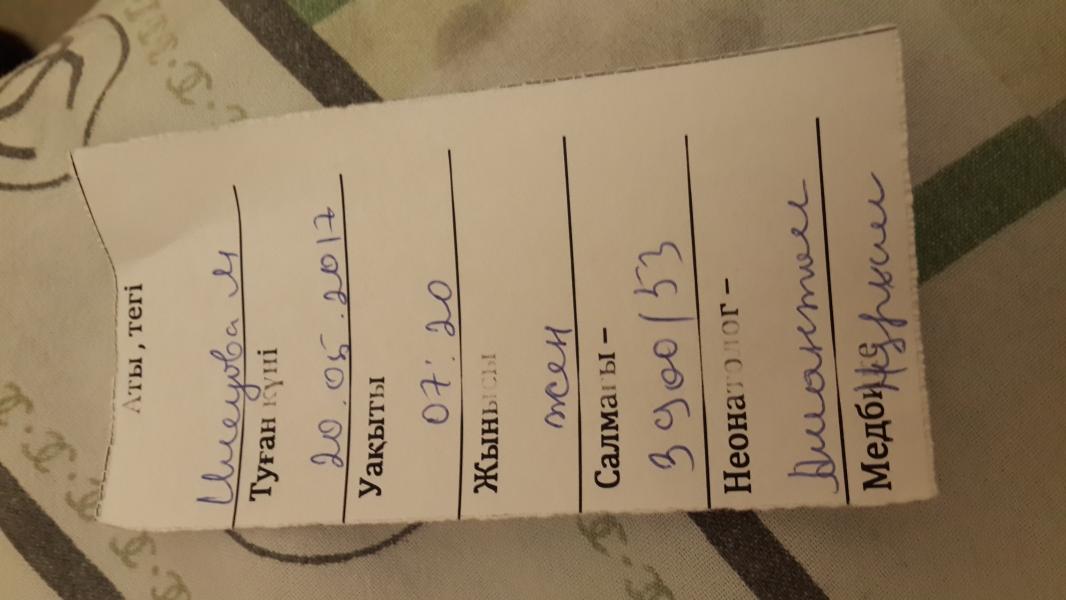 Аты , тегі
Имеуова М
Туған күні
20.05.2017
Уақыты
07:20
Жынысы
жен
Салмағы –
3900/53
Неонатолог –
Медбике